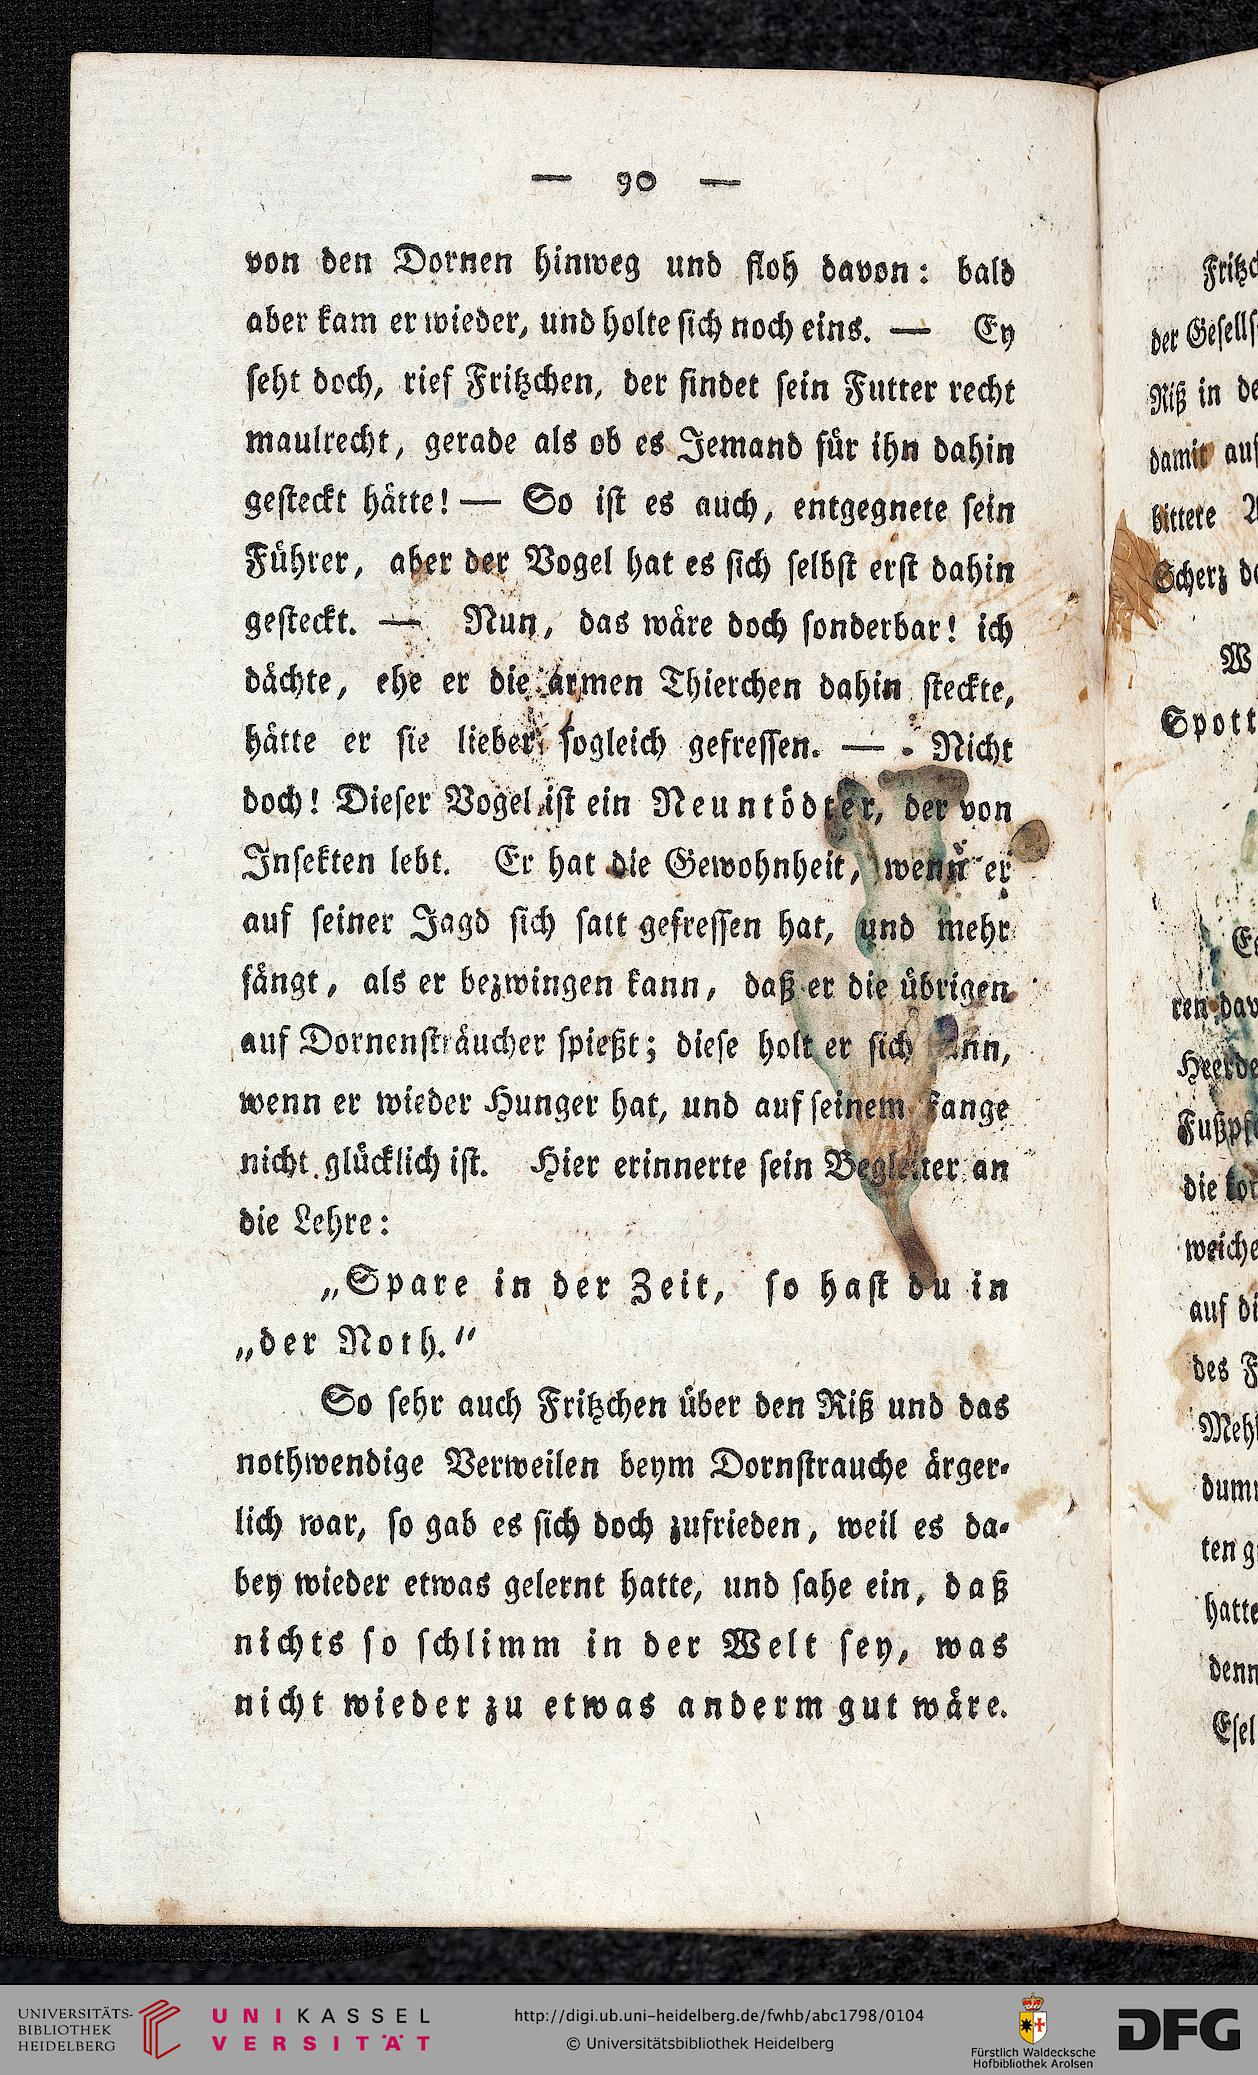 — 90 —
von den Dornen hinweg und floh davon: bald
aber kam er wieder, und holte sich noch eins. — Ey
seht doch, rief Fritzchen, der findet sein Futter recht
maulrecht, gerade als ob es Jemand für ihn dahin
gesteckt hätte! — So ist es auch, entgegnete sein
Führer, aber der Vogel hat es sich selbst erst dahin
gesteckt. — Nun, das wäre doch sonderbar! ich
dächte, ehe er die armen Thierchen dahin steckte,
hätte er sie lieber sogleich gefressen. — Nicht
doch! Dieser Vogel ist ein Neuntödter, der von
Insekten lebt. Er hat die Gewohnheit, wenn er
auf seiner Jagd sich satt gefressen hat, und mehr
fängt, als er bezwingen kann, daß er die übrigen
auf Dornensträucher spießt; diese holt er sich
wenn er wieder Hunger hat, und auf seinem Fange
nicht glücklich ist. Hier erinnerte sein Begleiter an
die Lehre:
„Spare in der Zeit, so hast du in
„der Noth.“
So sehr auch Fritzchen über den Riß und das
nothwendige Verweilen beym Dornstrauche ärger-
lich war, so gab es sich doch zufrieden, weil es da-
bey wieder etwas gelernt hatte, und sahe ein, daß
nichts so schlimm in der Welt sey, was
nicht wieder zu etwas anderm gut wäre.
der
Riß in
damit
bittere
Scherz
Spott
die
weiche
auf
des
ten
hatte
denn
Esel
UNIVERSITÄTS-
BIBLIOTHEK
HEIDELBERG
UNIKASSEL
VERSITÄT
http://digi.ub.uni-heidelberg.de/fwhb/abc1798/0104
© Universitätsbibliothek Heidelberg
Fürstlich Waldecksche
Hofbibliothek Arolsen
DFG